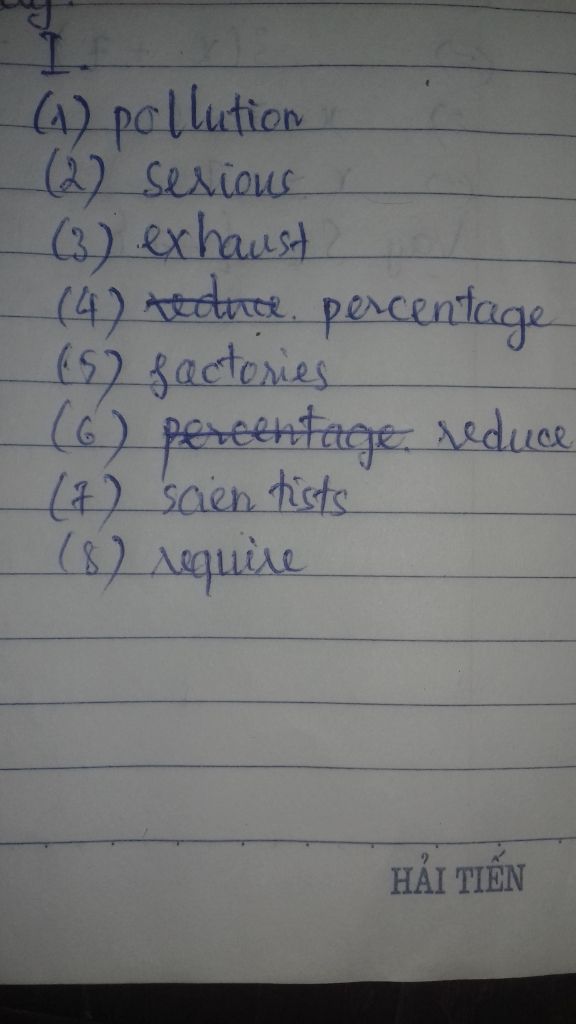 I.
(1) pollution
(2) serious
(3) exhaust
(4) reduce. percentage
(5) factories
(6) percentage. reduce
(7) scientists
(8) require
HẢI TIẾN